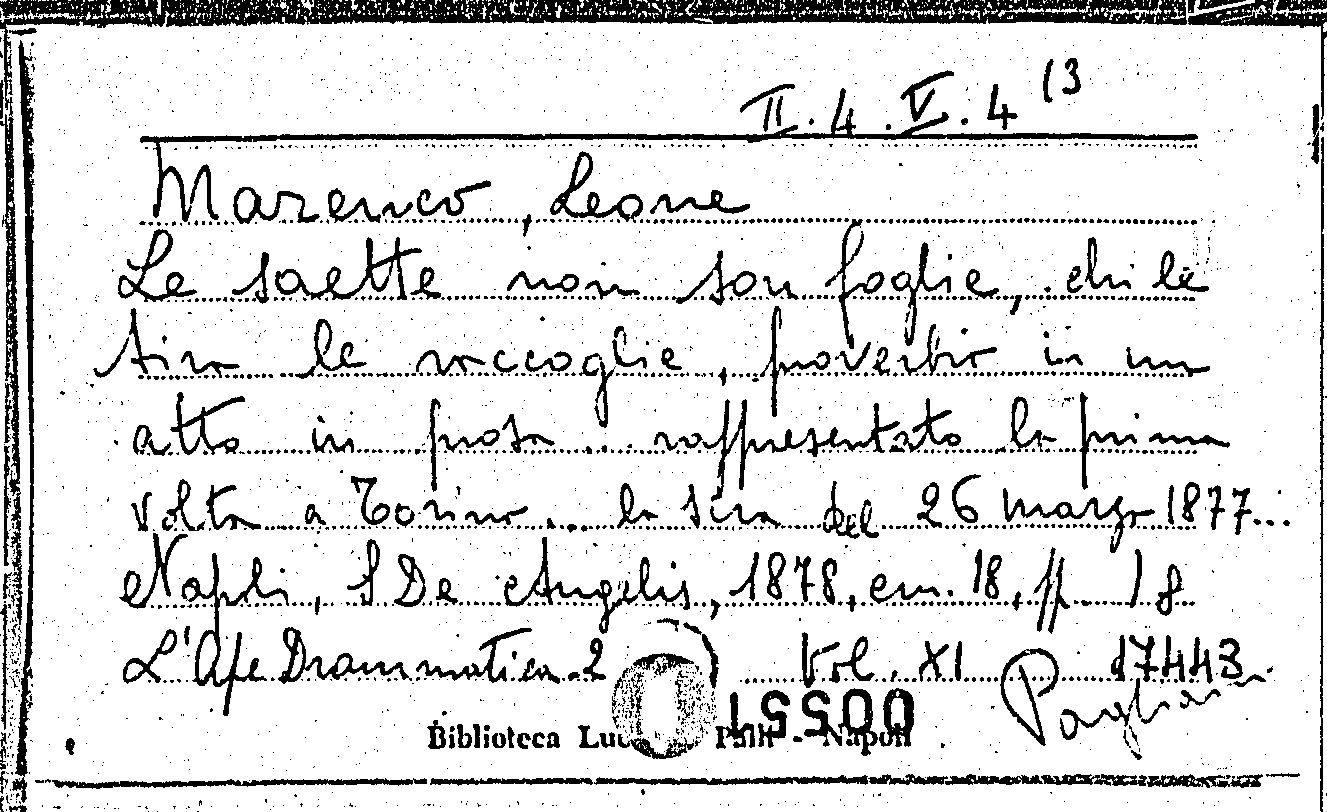 II.4.V.4 (3
Marenco, Leone
Le saette non son foglie, chi le
tira le raccoglie, proverbio in un
atto in prosa... rappresentato la prima
volta a Torino... la sera del 26 marzo 1877...
Napoli, S De Angelis, 1878, cm. 18, pp. 18
L'Ape Drammatica. 2 Vol. XI 17443
Pagliara
Biblioteca Luc Palli - Napoli